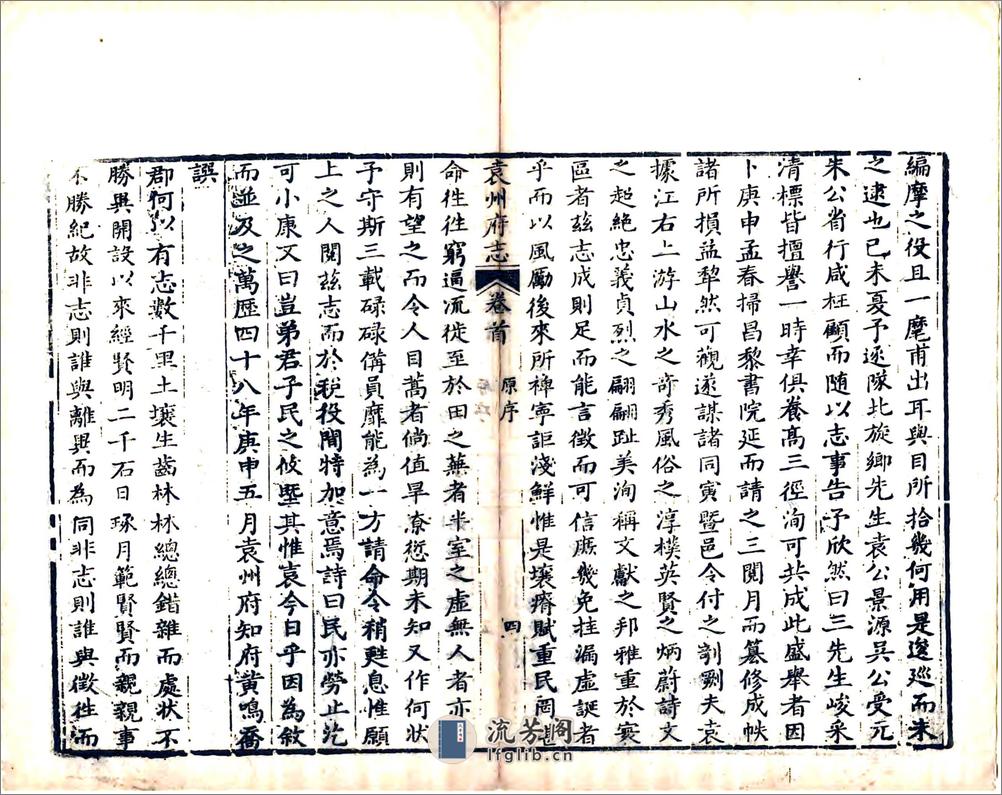 編摩之役且一麾甫出耳與目所拾幾何用是逡巡而未
之逮也已未夏予逐隊北旋鄉先生袁公景源吳公受元
朱公省行咸枉顧而随以志事告予欣然曰三先生峻采
清標皆擅譽一時幸俱養高三徑洵可共成此盛舉者因
卜庚申孟春掃昌黎書院延而請之三閱月而纂修成帙
諸所損益犂然可觀遂謀諸同寅暨邑令付之剞劂夫袁
據江右上游山水之奇秀風俗之淳樸英賢之炳蔚詩文
之超絶忠義貞烈之翩翩趾美洵稱文獻之邦雅重於寰
區者兹志成則足而能言徵而可信庶幾免挂漏虛誕者
乎而以風勵後來所裨寧詎淺鮮惟是壤瘠賦重民罔堪
袁州府志 卷首 原序 四
命徃徃窮逼流徙至於田之蕪者半室之虛無人者亦
則有望之而令人目蒿者倘值旱潦愆期未知又作何狀
予守斯三載碌碌備員靡能為一方請命令稍甦息惟願
上之人閱兹志而於税役閒特加意焉詩曰民亦勞止汔
可小康又曰豈弟君子民之攸塈其惟袁今日乎因為敘
而並及之萬歷四十八年庚申五月袁州府知府黄鳴喬
譔
郡何以有志數千里土壤生齒林林總總錯雜而處狀不
勝異開設以來經賢明二千石日琢月範賢賢而親親事
不勝紀故非志則誰與離異而為同非志則誰與徵徃而
流芳阁
lfglib.cn